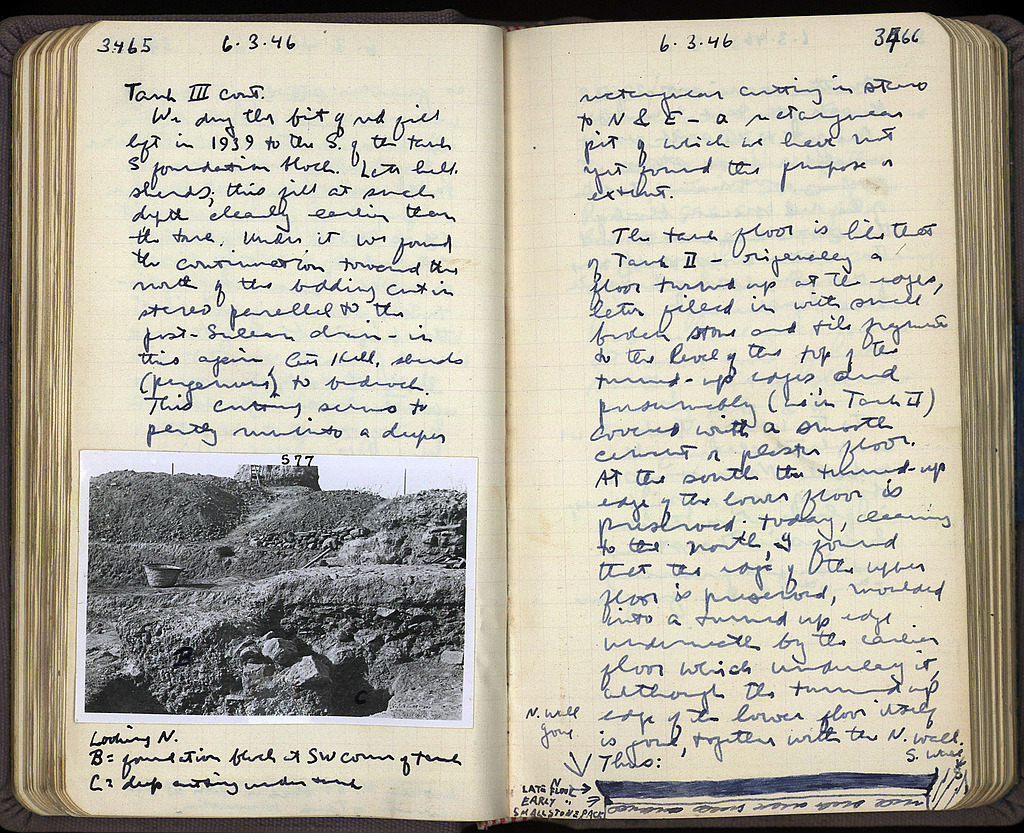 3465 6.3.46
Tank III cont.
We dug the bit of red fill
left in 1939 to the S. of the tank
S foundation block. Late hell.
sherds; this fill at such
depth clearly earlier than
the tank. Under it we found
the continuation toward the
north of the bedding cut in
stereo parallel to the
post-Sullan drain - in
this again, Hell. sherds
(pergamene) to bedrock.
This cutting seems to
partly run into a deeper
577
B
C
Looking N.
B = foundation block at SW corner of tank
C = deep cutting under tank
6.3.46 3466
rectangular cutting in stereo
to N & E - a rectangular
pit of which we have not
yet found the purpose or
extent.
The tank floor is like that
of Tank II - originally a
floor turned up at the edges,
later filled in with small
broken stone and tile fragments
to the level of the top of the
turned-up edges, and
presumably (as in Tank II)
covered with a smooth
cement or plaster floor.
At the south the turned-up
edge of the lower floor is
preserved. Today, cleaning
to the north, I found
that the edge of the upper
floor is preserved, moulded
into a turned up edge
underneath by the earlier
floor which underlay it,
although the turned up
edge of the lower floor itself
is gone, together with the N. wall.
Thus:
S. wall
N. wall
gone
LATE FLOOR
EARLY "
SMALL STONE PACK